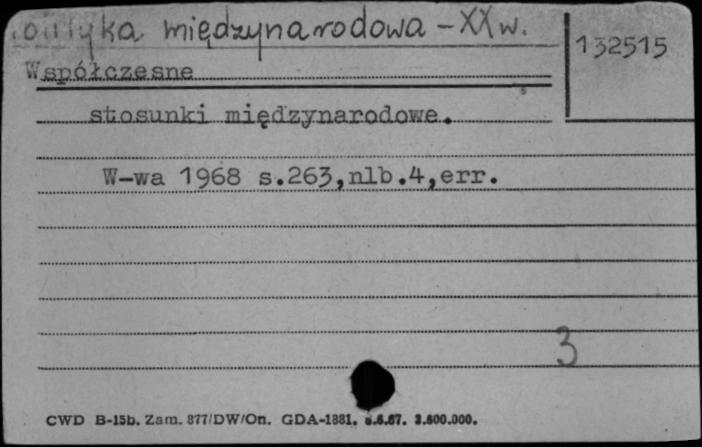 międzynarodowa - XX w.
132515
Współczesne
stosunki międzynarodowe.
W-wa 1968 s.263,nlb.4,err.
3
CWD B-15b. Zam. 877/DW/On. GDA-1881.